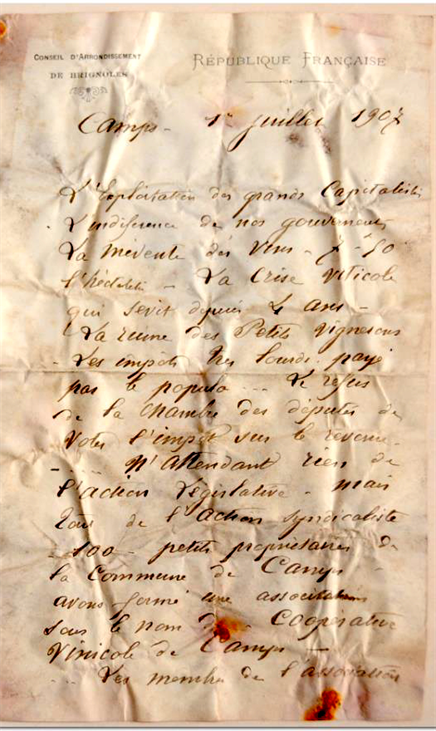 CONSEIL D'ARRONDISSEMENT
DE BRIGNOLES
RÉPUBLIQUE FRANÇAISE
Camps - 1er juillet 1907
L'Exploitation des grands Capitalistes
L'indiference de nos gouvernants
La mévente des vins - 7-50
l'hectolitre - La Crise viticole
qui sévit depuis 4 ans -
La ruine des Petits Vignerons
- Les impots très lourds payé
par le populo ... Le refus
de la Chambre des députés de
voter l'impot sur le revenu -
- ... N'attendant rien de
l'action législative - mais
tout de l'action syndicaliste
- 100 - petits propriétaires de
la Commune de Camps -
avons formé une association
sous le nom de Coopérative
Vinicole de Camps -
Les membres de l'association